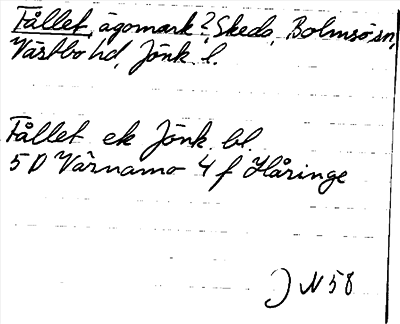 Fållet, ägomark?, Skeda, Bolmsö sn,
Västbo hd, Jönk. l.
Fållet ek Jönk. bl.
5 D Värnamo 4 f Håringe
J N 58